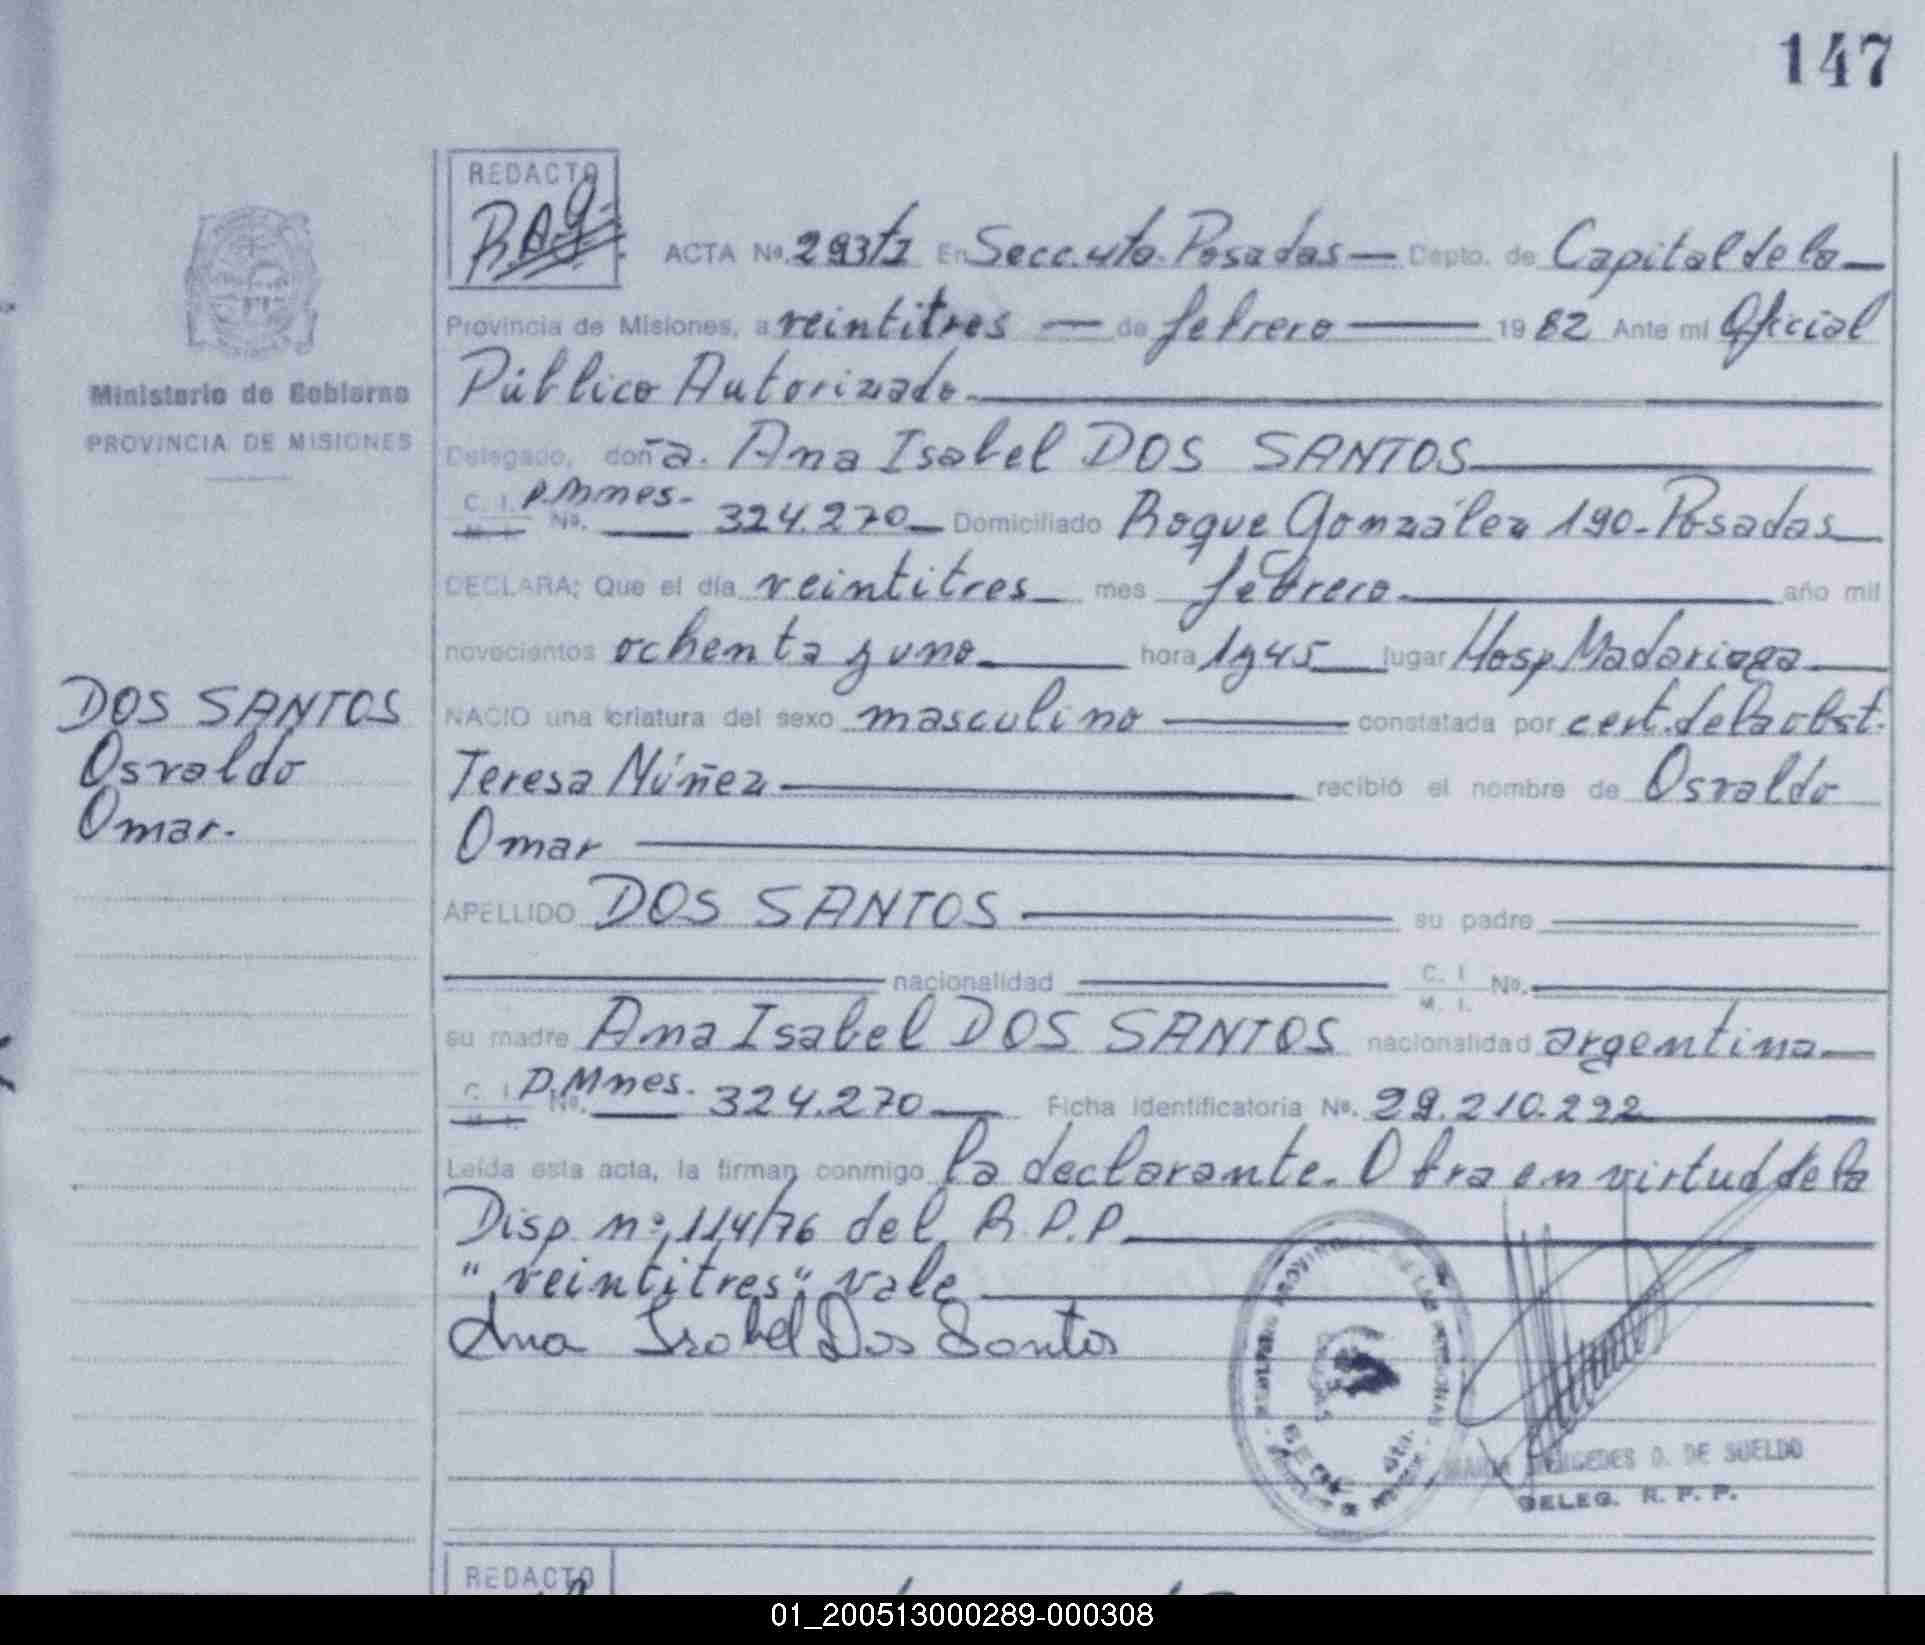 147
REDACTO
R.A.G.
ACTA Nº. 293/1 En Secc. 4ta. Posadas — Depto. de Capital de la —
Provincia de Misiones, a veintitres — de febrero — 1982 Ante mi Oficial
Público Autorizado.
Ministerio de Gobierno
PROVINCIA DE MISIONES
Delegado, doña. Ana Isabel DOS SANTOS
C. I. M. I. Nº. D.Mnes. 324.270 Domiciliado Roque González 190-Posadas
DECLARA; Que el día veintitres mes febrero año mil
novecientos ochenta y uno hora 1945 lugar Hosp Madariaga
DOS SANTOS
Osvaldo
Omar.
NACIO una criatura del sexo masculino constatada por cert. de la obst.
Teresa Núñez recibió el nombre de Osvaldo
Omar
APELLIDO DOS SANTOS su padre
nacionalidad C. I. M. I. Nº.
su madre Ana Isabel DOS SANTOS nacionalidad argentina
C. I. M. I. Nº. D.Mnes. 324.270 Ficha Identificatoria Nº. 29.210.292
Leída esta acta, la firman conmigo la declarante. Obra en virtud de la
Disp. nº 114/76 del R.P.P.
"veintitres" vale
Ana Isabel Dos Santos
MERCEDES D. DE SUELDO
DELEG. R. P. P.
REDACTO
01_200513000289-000308